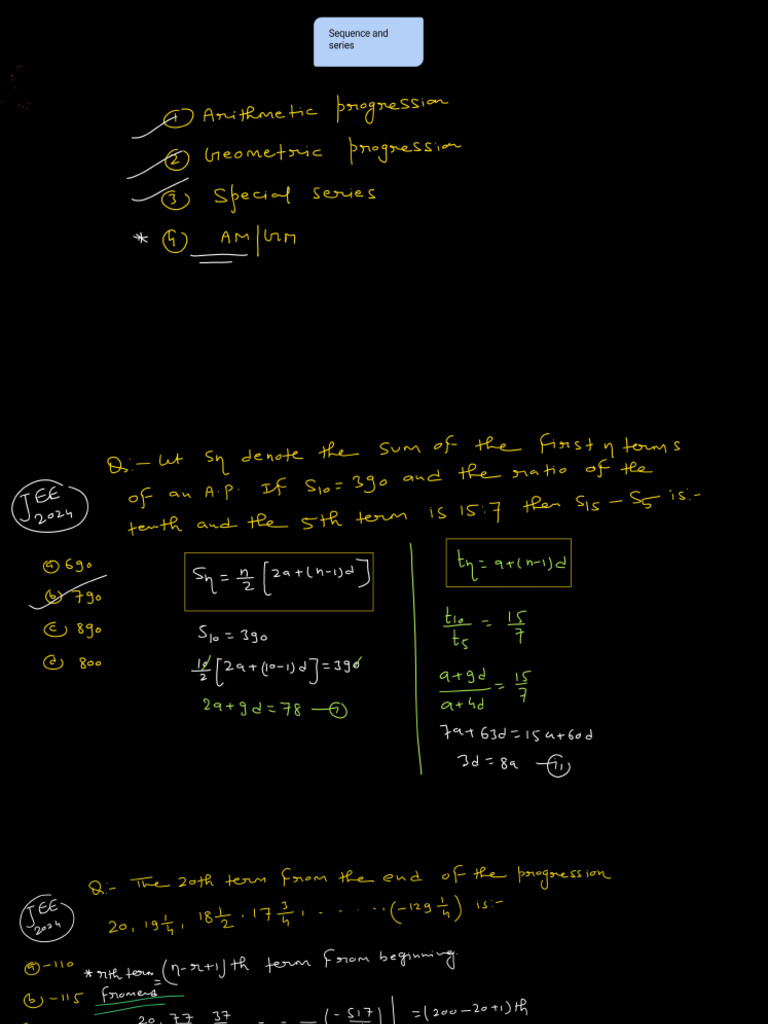 Sequence and
series
① Arithmetic progression
② Geometric progression
③ Special series
* ④ AM/GM
Q:- Let Sn denote the sum of the first n terms
of an A.P. If S10 = 390 and the ratio of the
tenth and the 5th term is 15:7 then S15 - S5 is:-
JEE
2024
ⓐ 690
ⓑ 790
ⓒ 890
ⓓ 800
Sn = n/2 [2a+(n-1)d]
S10 = 390
10/2 [2a+(10-1)d] = 390
2a+9d = 78 —ⓘ
tn = a+(n-1)d
t10/t5 = 15/7
a+9d/a+4d = 15/7
7a+63d = 15a+60d
3d = 8a —ⓘⓘ
Q:- The 20th term from the end of the progression
20, 19 1/4, 18 1/2, 17 3/4, ...... (-129 1/4) is:-
JEE
2024
ⓐ -110
ⓑ -115
* rth term = (n-r+1)th term from beginning.
from end
20, 77 37 - - - (-517) = (200-20+1)th